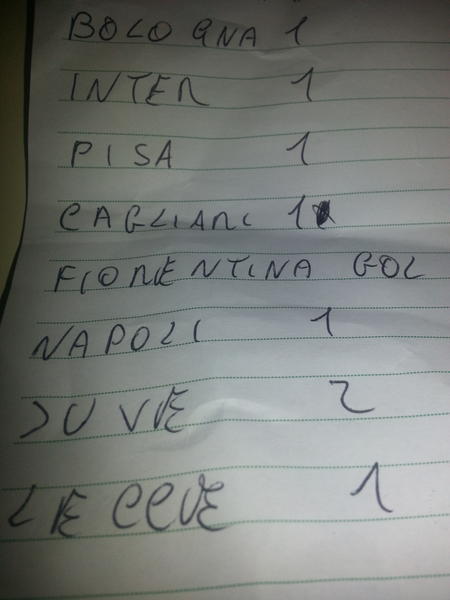 BOLOGNA 1
INTER 1
PISA 1
CAGLIARI 1
FIORENTINA GOL
NAPOLI 1
JUVE 2
LECCE 1